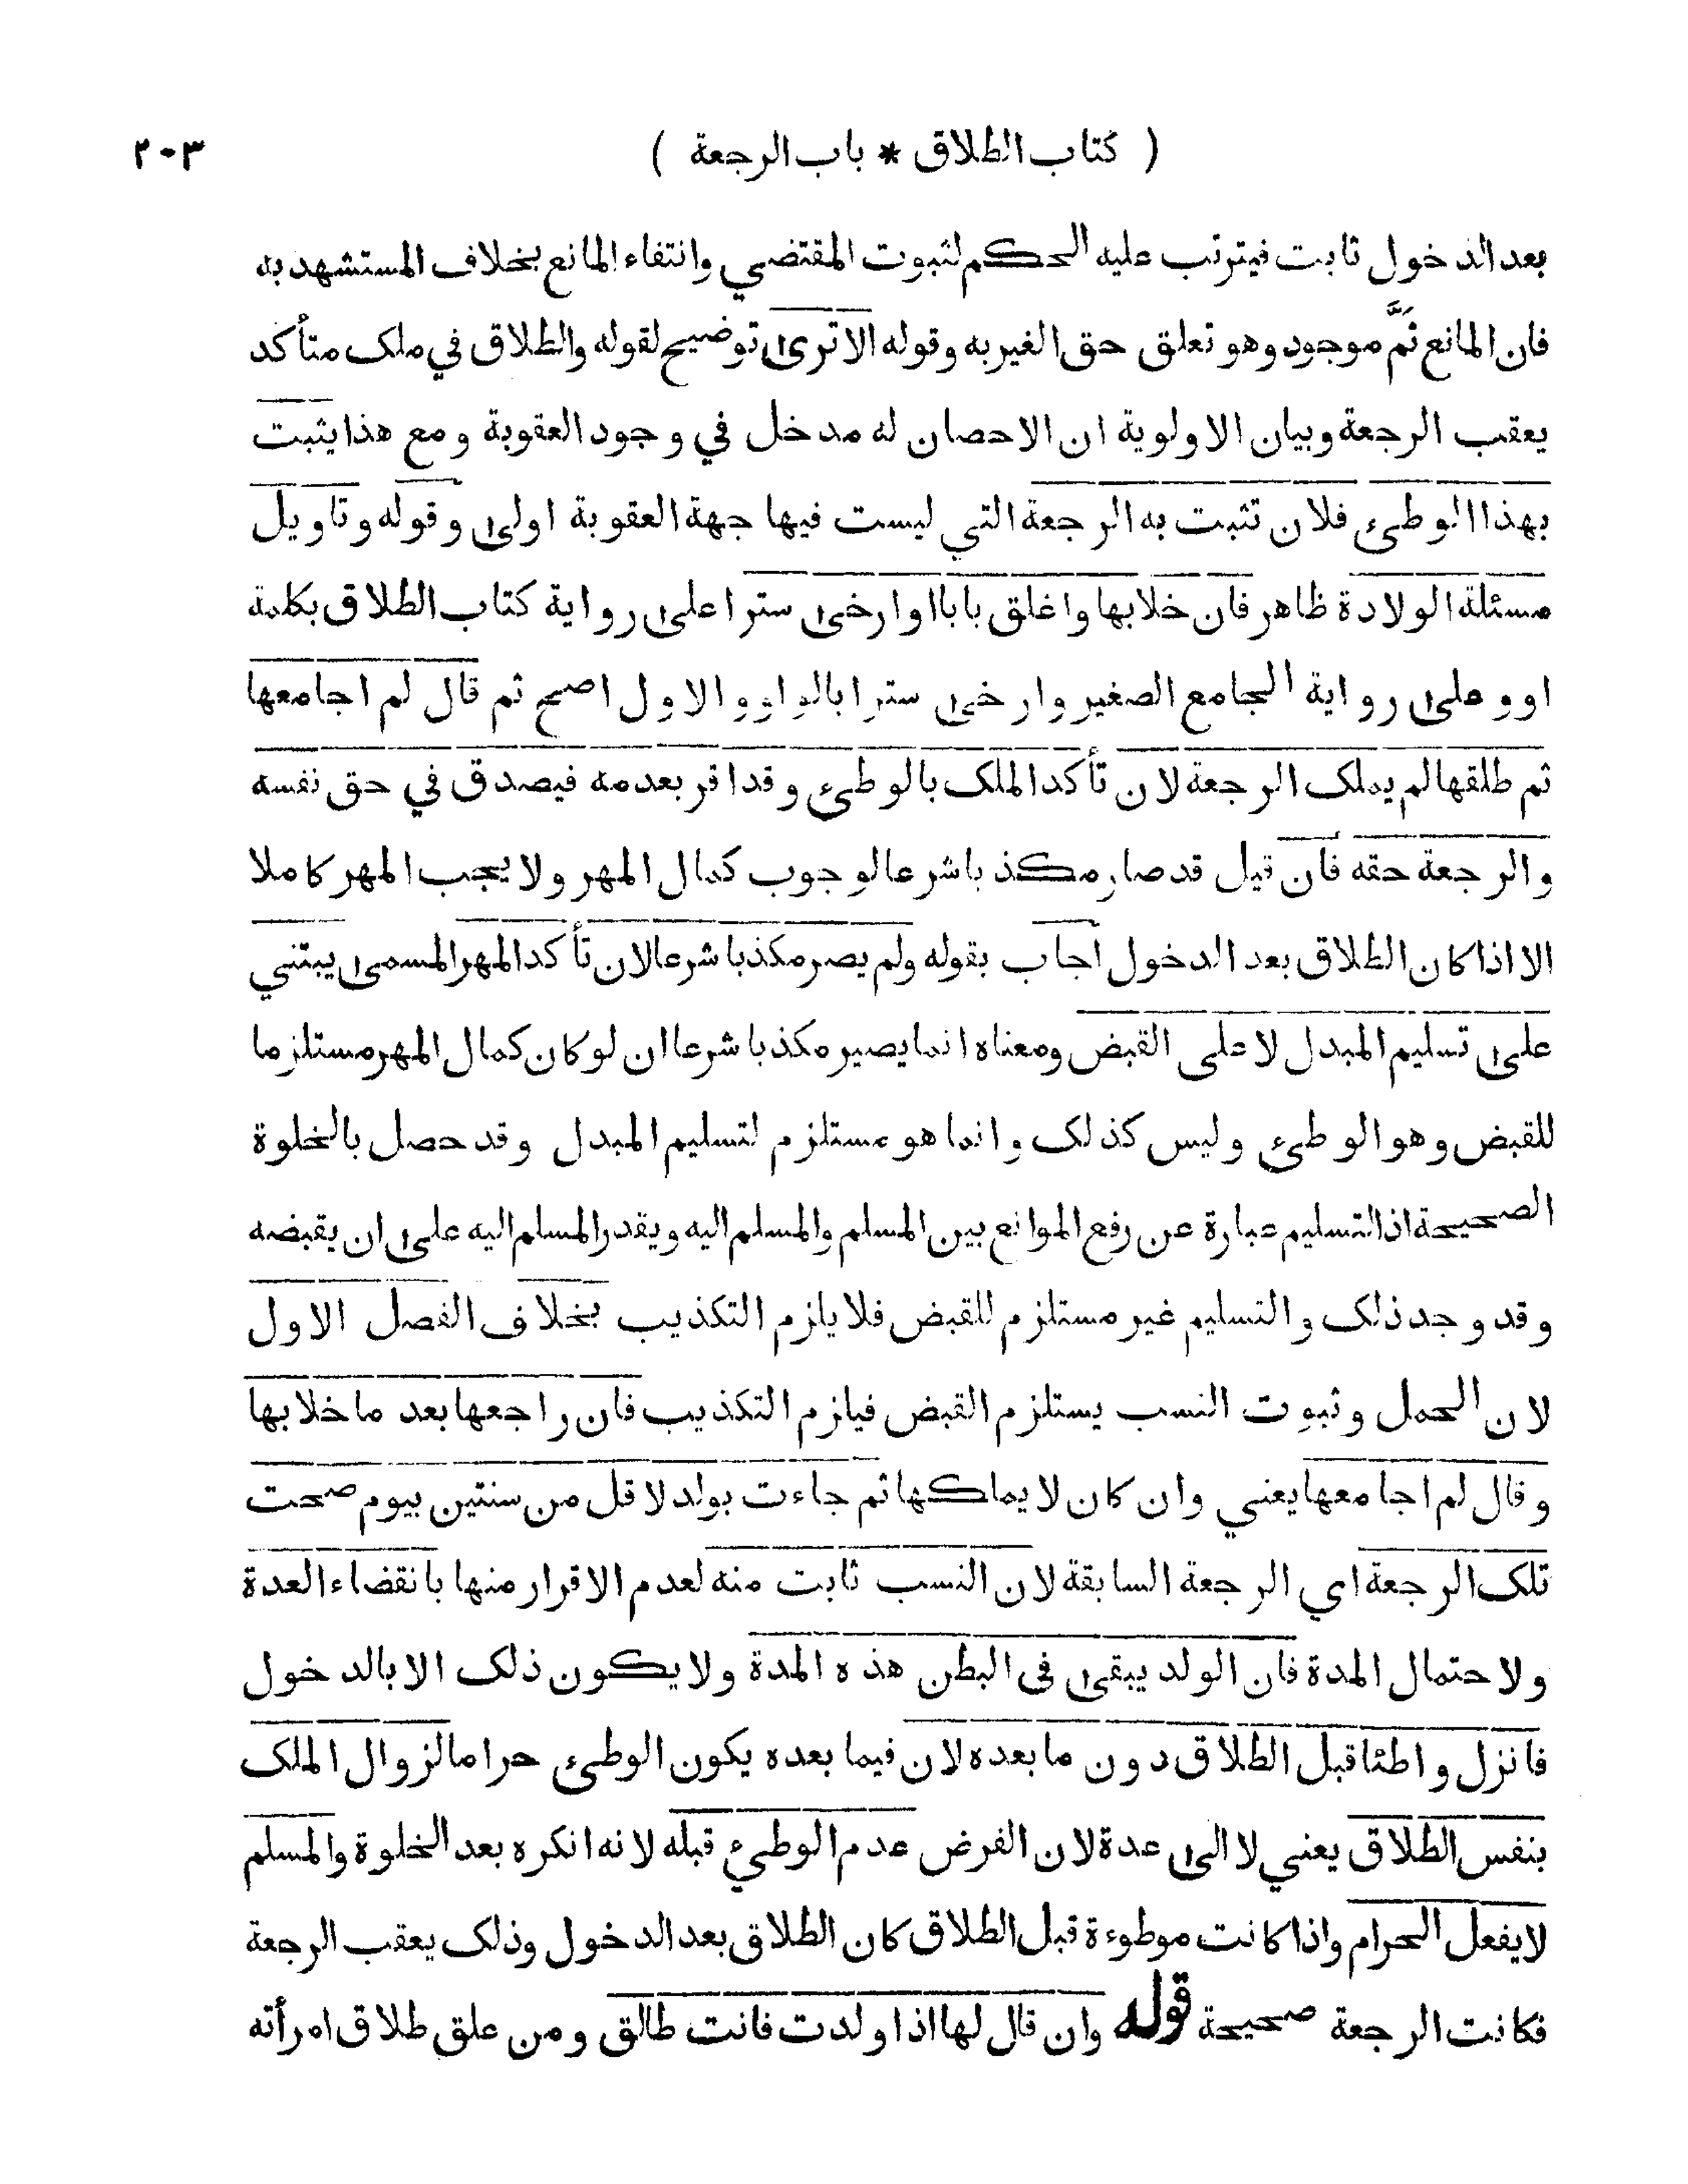 ( كتاب الطلاق * باب الرجعة ) ٢٠٣
بعد الدخول ثابت فيترتب عليه الحكم لثبوت المقتضي وانتفاء المانع بخلاف المستشهد به
فان المانع ثَمَّ موجود وهو تعلق حق الغير به وقوله الا ترى توضيح لقوله والطلاق في ملك متأكد
يعقب الرجعة وبيان الاولوية ان الاحصان له مدخل في وجود العقوبة ومع هذا يثبت
بهذا الوطيء فلان تثبت به الرجعة التي ليست فيها جهة العقوبة اولى وقوله وتاويل
مسئلة الولادة ظاهر فان خلا بها واغلق بابا او ارخى سترا على رواية كتاب الطلاق بكلمة
او وعلى رواية الجامع الصغير وارخى سترا بالواو والاول اصح ثم قال لم اجامعها
ثم طلقها لم يملك الرجعة لان تأكد الملك بالوطيء وقد اقر بعدمه فيصدق في حق نفسه
والرجعة حقه فان قيل قد صار مكذبا شرعا لوجوب كمال المهر ولا يجب المهر كاملا
الا اذا كان الطلاق بعد الدخول أجاب بقوله ولم يصر مكذبا شرعا لان تأكد المهر المسمى يبتني
على تسليم المبدل لا على القبض ومعناه انما يصير مكذبا شرعا ان لو كان كمال المهر مستلزما
للقبض وهو الوطيء وليس كذلك وانما هو مستلزم لتسليم المبدل وقد حصل بالخلوة
الصحيحة اذ التسليم عبارة عن رفع الموانع بين المسلم والمسلم اليه ويقدر المسلم اليه على ان يقبضه
وقد وجد ذلك والتسليم غير مستلزم للقبض فلا يلزم التكذيب بخلاف الفصل الاول
لان الحمل وثبوت النسب يستلزم القبض فيلزم التكذيب فان راجعها بعد ما خلا بها
وقال لم اجامعها يعني وان كان لا يملكها ثم جاءت بولد لاقل من سنتين بيوم صحت
تلك الرجعة اي الرجعة السابقة لان النسب ثابت منه لعدم الاقرار منها بانقضاء العدة
ولاحتمال المدة فان الولد يبقى فى البطن هذه المدة ولا يكون ذلك الا بالدخول
فانزل واطئا قبل الطلاق دون ما بعده لان فيما بعده يكون الوطيء حراما لزوال الملك
بنفس الطلاق يعني لا الى عدة لان الفرض عدم الوطيء قبله لانه انكره بعد الخلوة والمسلم
لا يفعل الحرام واذا كانت موطوءة قبل الطلاق كان الطلاق بعد الدخول وذلك يعقب الرجعة
فكانت الرجعة صحيحة قوله وان قال لها اذا ولدت فانت طالق ومن علق طلاق امرأته